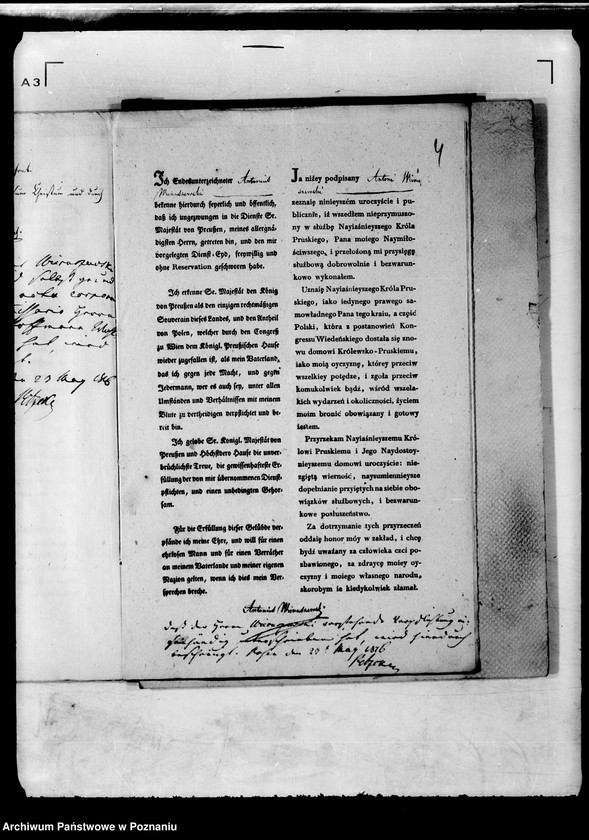 A 3
4
Ich Endesunterzeichneter Antonius
bekenne hierdurch feyerlich und öffentlich,
daß ich ungezwungen in die Dienste Sr.
Majestät von Preußen, meines allergnä-
digsten Herrn, getreten bin, und den mir
vorgelegten Dienst-Eyd, freywillig und
ohne Reservation geschworen habe.
Ich erkenne Sr. Majestät den König
von Preußen als den einzigen rechtmäßigen
Souverain dieses Landes, und den Antheil
von Polen, welcher durch den Congreß
zu Wien dem Königl. Preußischen Hause
wieder zugefallen ist, als mein Vaterland,
das ich gegen jede Macht, und gegen
Jedermann, wer es auch sey, unter allen
Umständen und Verhältnissen mit meinem
Blute zu vertheidigen verpflichtet und be-
reit bin.
Ich gelobe Sr. Königl. Majestät von
Preußen und Höchstdero Hause die unver-
brüchlichste Treue, die gewissenhafteste Er-
füllung der von mir übernommenen Dienst-
pflichten, und einen unbedingten Gehor-
sam.
Für die Erfüllung dieser Gelübde ver-
pfände ich meine Ehre, und will für einen
ehrlosen Mann und für einen Verräther
an meinem Vaterlande und meiner eigenen
Nazion gelten, wenn ich dies mein Ver-
sprechen breche.
Ja niżey podpisany Antoni
zeznaię ninieyszém uroczyście i pu-
blicznie, iż wszedłem nieprzymuszo-
ny w służbę Nayiaśnieyszego Króla
Pruskiego, Pana moiego Naymiło-
ściwszego, i przełożoną mi przysięgę
służbową dobrowolnie i bezwarun-
kowo wykonałem.
Uznaię Nayiaśnieyszego Króla Pru-
skiego, iako iedynego prawego sa-
mowładnego Pana tego kraiu, a część
Polski, która z postanowień Kon-
gressu Wiedeńskiego dostała się zno-
wu domowi Królewsko-Pruskiemu,
iako moią oyczyznę, którey przeciw
wszelkiey potędze, i zgoła przeciw
komukolwiek bądź, wśród wszela-
kich wydarzeń i okoliczności, życiem
moim bronić obowiązany i gotowy
iestem.
Przyrzekam Nayiaśnieyszemu Kró-
lowi Pruskiemu i Jego Naydostoy-
nieyszemu domowi uroczyście: nie-
zgiętą wierność, naysumiennieysze
dopełnianie przyiętych na siebie obo-
wiązków służbowych, i bezwarun-
kowe posłuszeństwo.
Za dotrzymanie tych przyrzeczeń
oddaię honor móy w zakład, i chcę
bydź uważany za człowieka czci po-
zbawionego, za zdraycę moiey oy-
czyzny i moiego własnego narodu,
skorobym ie kiedykolwiek złamał.
Antonius
Daß der Herr vorstehende
eigenhändig unterschrieben hat, wird hierdurch
bescheinigt. Posen den 23t May 1816
23 May 1816
Archiwum Państwowe w Poznaniu